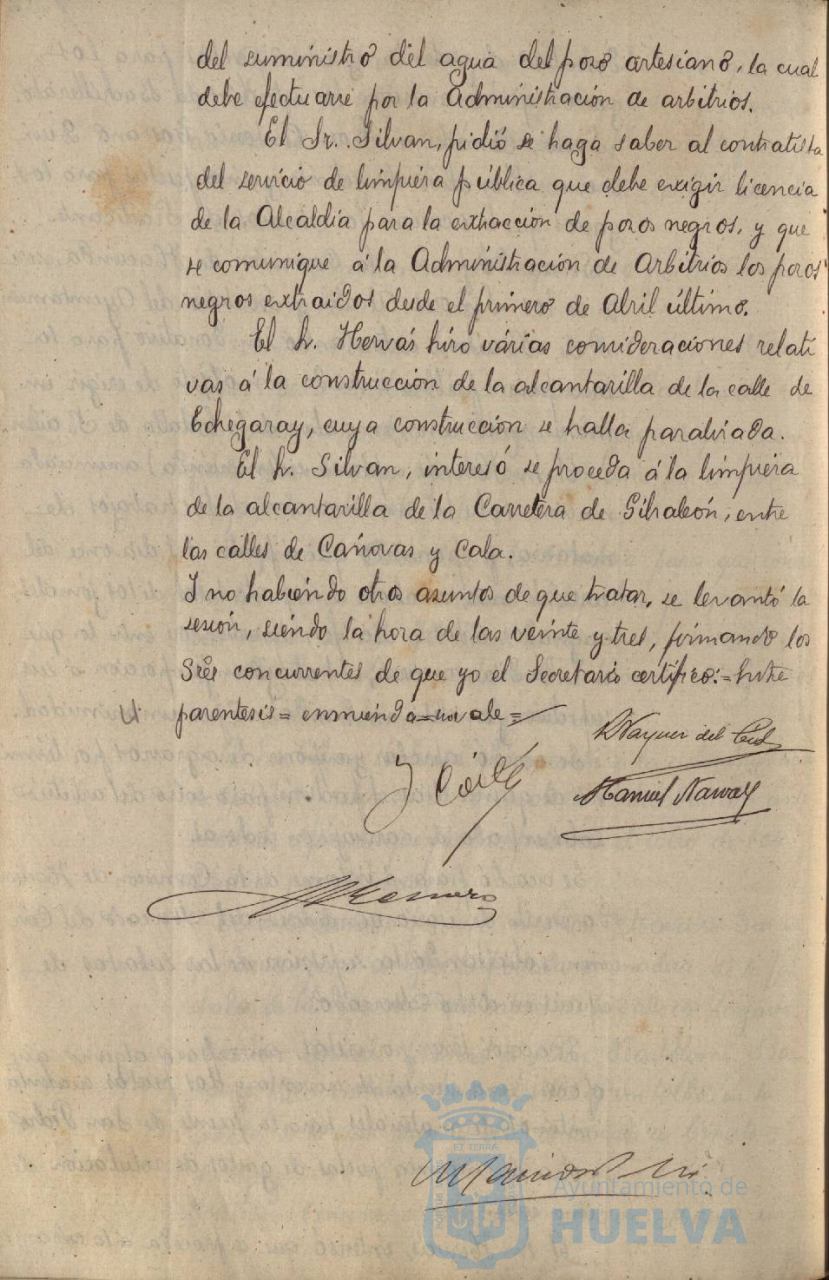 del suministro del agua del pozo artesiano, la cual
debe efectuarse por la Administración de arbitrios.
El Sr. Silvan, pidió se haga saber al contratista
del servicio de limpieza pública que debe exigir licencia
de la Alcaldía para la extracción de pozos negros, y que
se comunique á la Administración de Arbitrios los pozos
negros extraidos desde el primero de Abril último.
El Sr. Hervás hizo várias consideraciones relati
vas á la construcción de la alcantarilla de la calle de
Echegaray, cuya construcción se halla paralizada.
El Sr. Silvan, interesó se proceda á la limpieza
de la alcantarilla de la Carretera de Gibraleón, entre
las calles de Cánovas y Cala.
Y no habiendo otros asuntos de que tratar, se levantó la
sesión, siendo la hora de las veinte y tres, firmando los
Sres concurrentes de que yo el Secretario certifico:=Entre
parentesis=enmienda=no vale=
Manuel Narvaez
ET TERRA
Ayuntamiento de
HUELVA